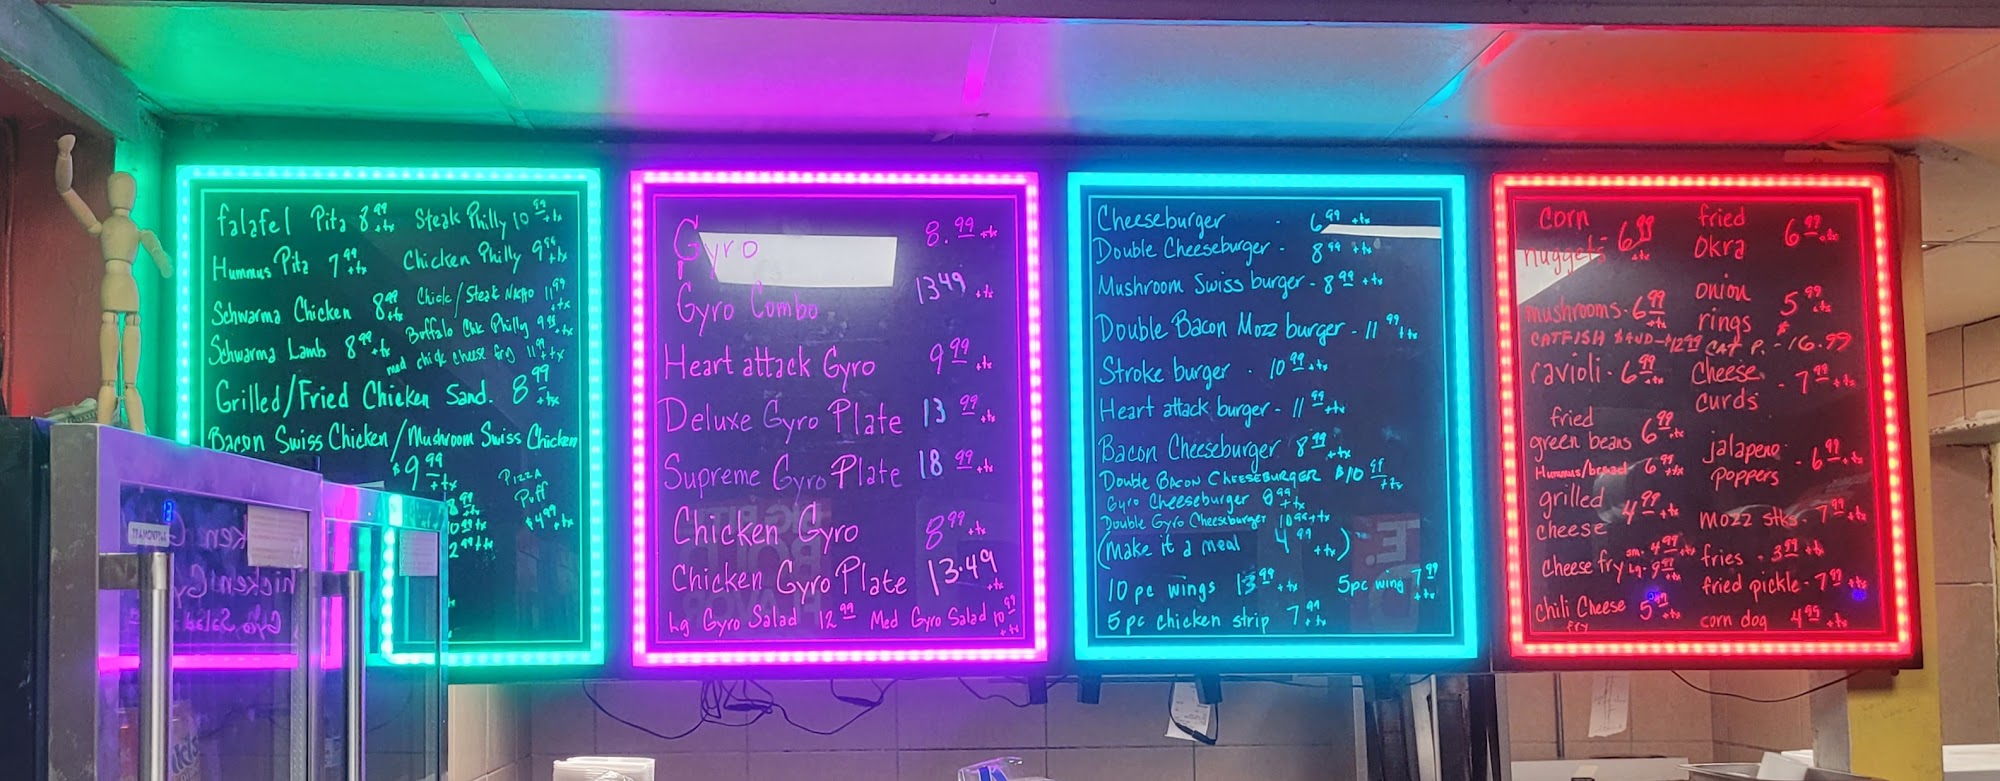 falafel Pita 8.99 +tx Steak Philly 10.99 +tx
Hummus Pita 7.99 +tx Chicken Philly 9.99 +tx
Schwarma Chicken 8.99 +tx Chick/Steak Nacho 11.99 +tx
Schwarma Lamb 8.99 +tx Buffalo Chk Philly 9.99 +tx
med chick cheese fry 11.99 +tx
Grilled/Fried Chicken Sand. 8.99 +tx
Bacon Swiss Chicken/Mushroom Swiss Chicken
$9.99 +tx
Pizza
Puff
$4.99 +tx
Gyro 8.99 +tx
Gyro Combo 13.49 +tx
Heart attack Gyro 9.99 +tx
Deluxe Gyro Plate 13.99 +tx
Supreme Gyro Plate 18.99 +tx
Chicken Gyro 8.99 +tx
Chicken Gyro Plate 13.49 +tx
Lg Gyro Salad 12.99 Med Gyro Salad 10.99 +tx
Cheeseburger - 6.99 +tx
Double Cheeseburger - 8.99 +tx
Mushroom Swiss burger - 8.99 +tx
Double Bacon Mozz burger - 11.99 +tx
Stroke burger - 10.99 +tx
Heart attack burger - 11.99 +tx
Bacon Cheeseburger 8.99 +tx
Double Bacon Cheeseburger $10.99 +tx
Gyro Cheeseburger 8.99 +tx
Double Gyro Cheeseburger 10.99 +tx
(Make it a meal 4.99 +tx)
10 pc wings 13.99 +tx 5pc wing 7.99 +tx
5 pc chicken strip 7.99 +tx
corn nuggets 6.99 +tx
fried okra 6.99 +tx
mushrooms - 6.99 +tx
onion rings 5.99 +tx
CATFISH SAND - $12.99 CAT P. - $16.99
ravioli - 6.99 +tx
Cheese curds - 7.99 +tx
fried green beans 6.99 +tx
Hummus/bread - 6.99 +tx
jalapeno poppers - 6.99 +tx
grilled cheese 4.99 +tx
mozz stks - 7.99 +tx
Cheese fry sm. 4.99 +tx Lg. 9.99 +tx
fries - 3.99 +tx
fried pickle - 7.99 +tx
Chili Cheese fry 5.99 +tx
corn dog 4.99 +tx